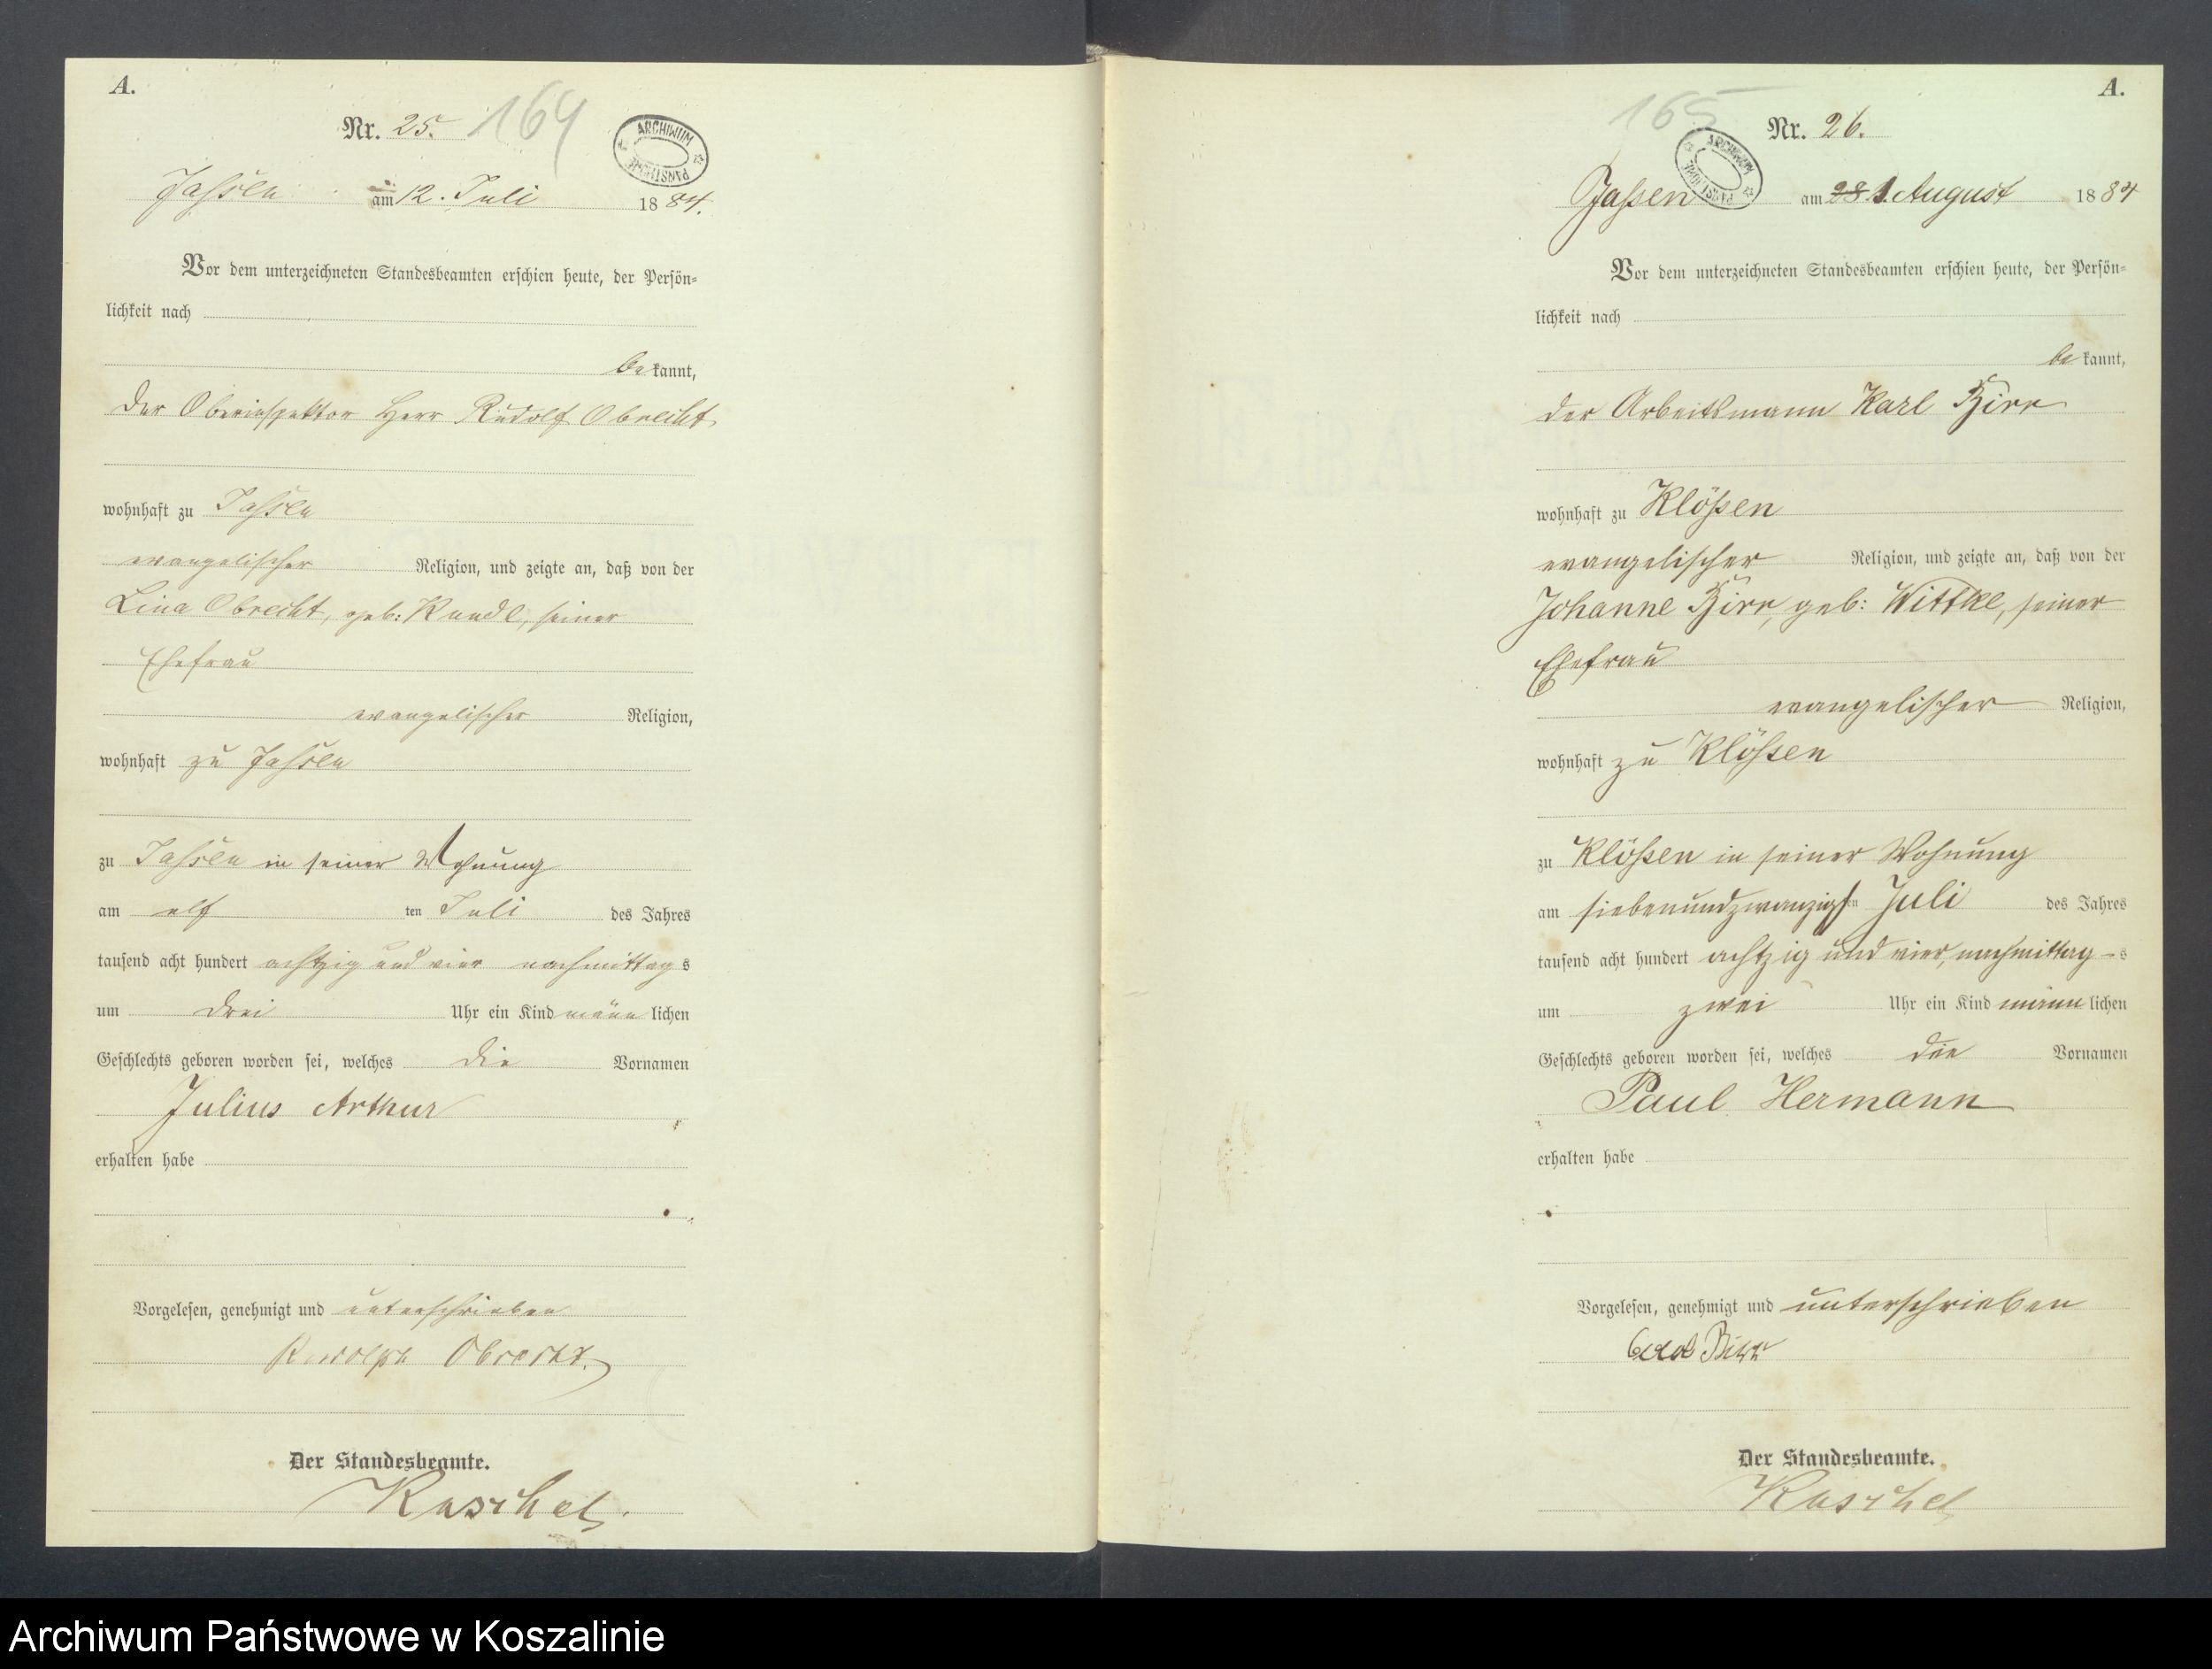 A.
Nr. 25. 164
ARCHIWUM PAŃSTWOWE
Jassen am 12. Juli 1884.
Vor dem unterzeichneten Standesbeamten erschien heute, der Persön=
lichkeit nach
be kannt,
der Oberinspektor Herr Rudolf Obrecht
wohnhaft zu Jassen
evangelischer Religion, und zeigte an, daß von der
Lina Obrecht, geb: Kundl, seiner
Ehefrau
evangelischer Religion,
wohnhaft zu Jassen
zu Jassen in seiner Wohnung
am elf ten Juli des Jahres
tausend acht hundert achtzig und vier nachmittag s
um drei Uhr ein Kind männ lichen
Geschlechts geboren worden sei, welches die Vornamen
Julius Arthur
erhalten habe
Vorgelesen, genehmigt und unterschrieben
Rudolph Obrecht.
Der Standesbeamte.
Raschel
A.
165 Nr. 26.
ARCHIWUM PAŃSTWOWE
Jaßen am 28 1. August 1884
Vor dem unterzeichneten Standesbeamten erschien heute, der Persön=
lichkeit nach
be kannt,
der Arbeitsmann Karl Birr
wohnhaft zu Klößen
evangelischer Religion, und zeigte an, daß von der
Johanne Birr, geb: Wittke, seiner
Ehefrau
evangelischer Religion,
wohnhaft zu Klößen
zu Klößen in seiner Wohnung
am siebenundzwanzigsten Juli des Jahres
tausend acht hundert achtzig und vier, nachmittag - s
um zwei Uhr ein Kind männ lichen
Geschlechts geboren worden sei, welches die Vornamen
Paul Hermann
erhalten habe
Vorgelesen, genehmigt und unterschrieben
Birr
Der Standesbeamte.
Raschel
Archiwum Państwowe w Koszalinie